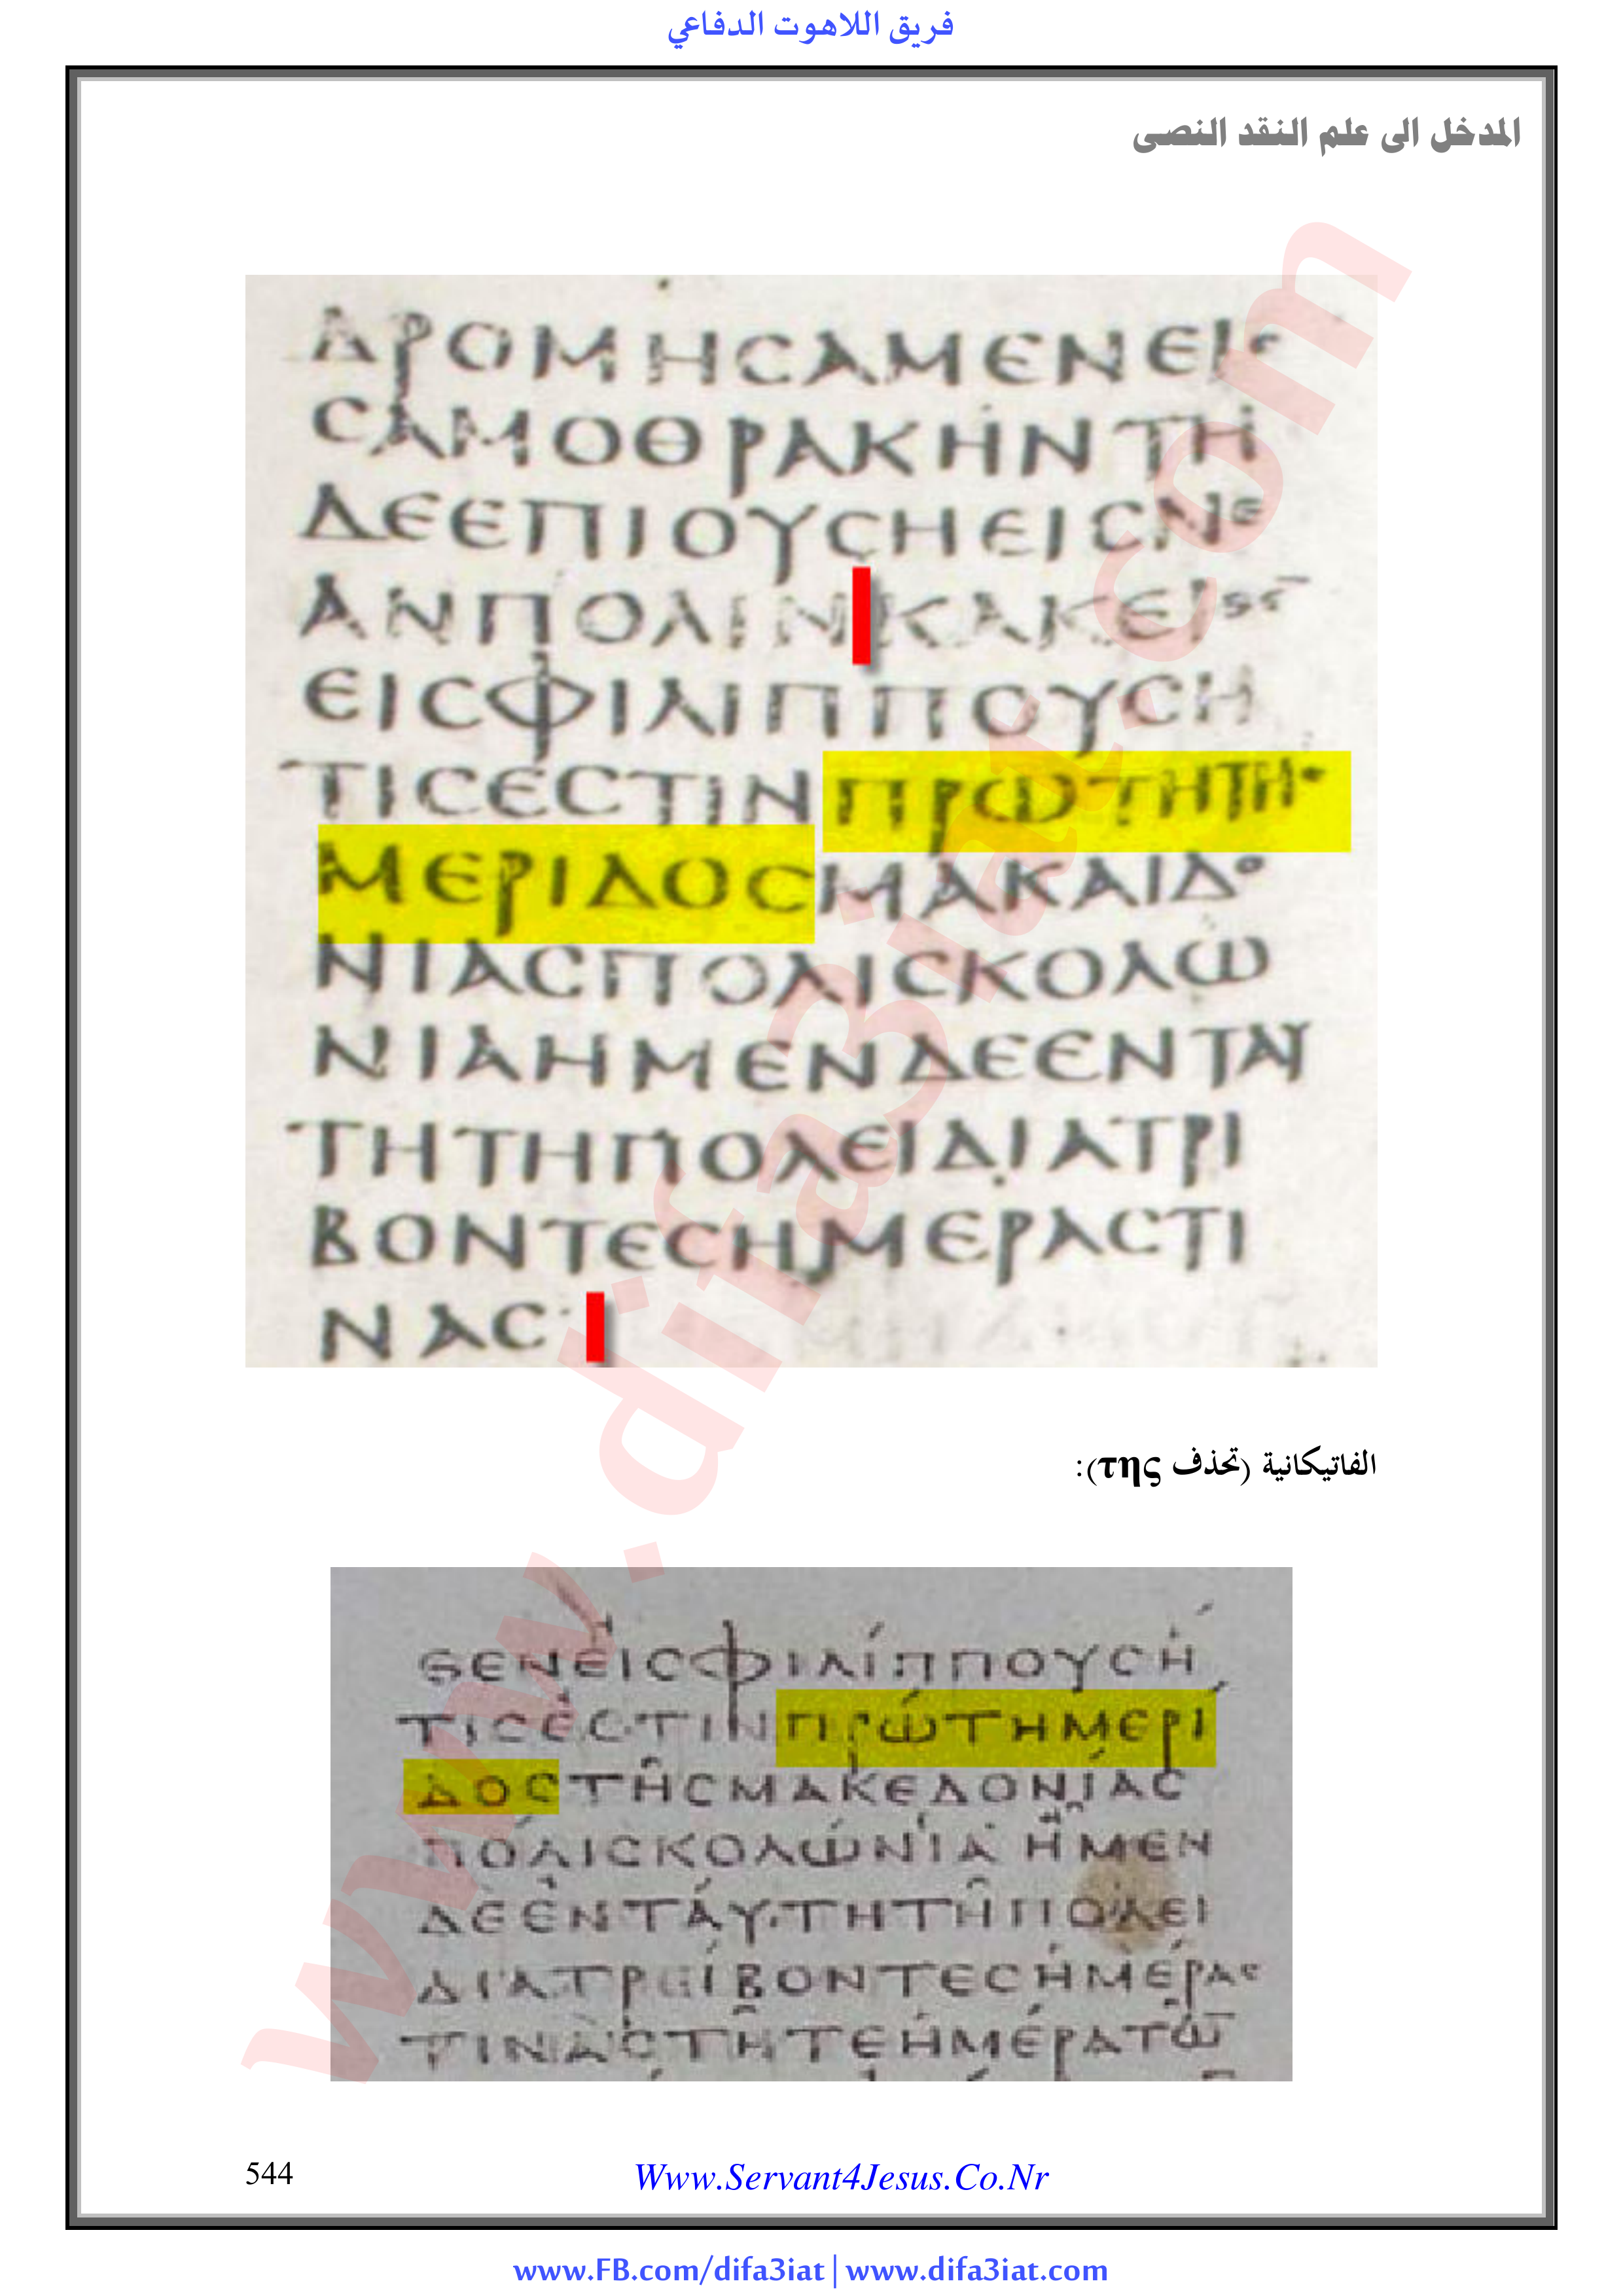 فريق اللاهوت الدفاعي
المدخل الى علم النقد النصى
ΔΡΟΜΗϹΑΜΕΝΕΙϹ
ϹΑΜΟΘΡΑΚΗΝΤΗ
ΔΕΕΠΙΟΥϹΗΕΙϹΝΕ
ΑΝΠΟΛΙΝΚΑΚΕΙ
ΕΙϹΦΙΛΙΠΠΟΥϹΗ
ΤΙϹΕϹΤΙΝΠΡΩΤΗΤΗϹ
ΜΕΡΙΔΟϹΜΑΚΑΙΔΟ
ΝΙΑϹΠΟΛΙϹΚΟΛΩ
ΝΙΑΗΜΕΝΔΕΕΝΤΑΥ
ΤΗΤΗΠΟΛΕΙΔΙΑΤΡΙ
ΒΟΝΤΕϹΗΜΕΡΑϹΤΙ
ΝΑϹ
الفاتيكانية (تحذف της):
ΘΕΝΕΙϹΦΙΛΙΠΠΟΥϹΗ
ΤΙϹΕϹΤΙΝΠΡΩΤΗΜΕΡΙ
ΔΟϹΤΗϹΜΑΚΕΔΟΝΙΑϹ
ΠΟΛΙϹΚΟΛΩΝΙΑ ΗΜΕΝ
ΔΕΕΝΤΑΥΤΗΤΗΠΟΛΕΙ
ΔΙΑΤΡΕΙΒΟΝΤΕϹΗΜΕΡΑϹ
ΤΙΝΑϹΤΗΤΕΗΜΕΡΑΤΩ
www.difa3iat.com
544
Www.Servant4Jesus.Co.Nr
www.FB.com/difa3iat | www.difa3iat.com